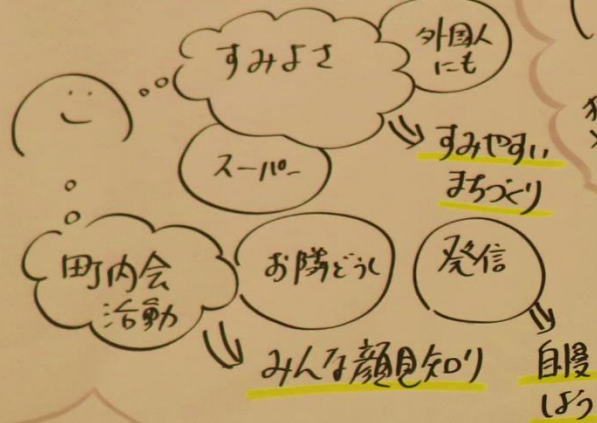 すみよさ
外国人
にも
すみやすい
まちづくり
スーパー
町内会
活動
お隣どうし
発信
みんな顔見知り
自慢
しよう